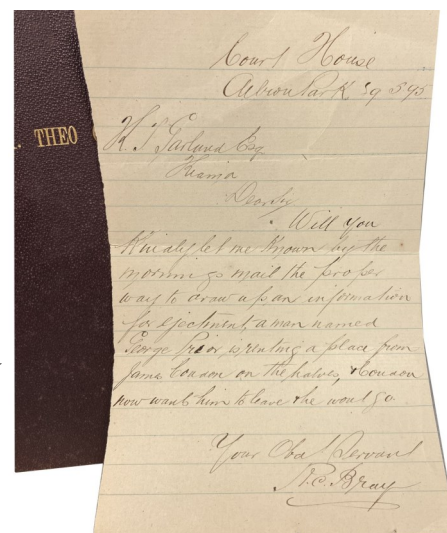 . THEO
Court House
Albion Park 29 5 95
H. S Garland Esq
Kiama
Dear Sir
Will you
Kindly let me Known by the
morning mail the proper
way to draw up an information
for ejectment, a man named
George Prior is renting a place from
James Condon on the halves, & Condon
now wants him to leave & he wont go.
Your Obd Servant
H.C. Bray